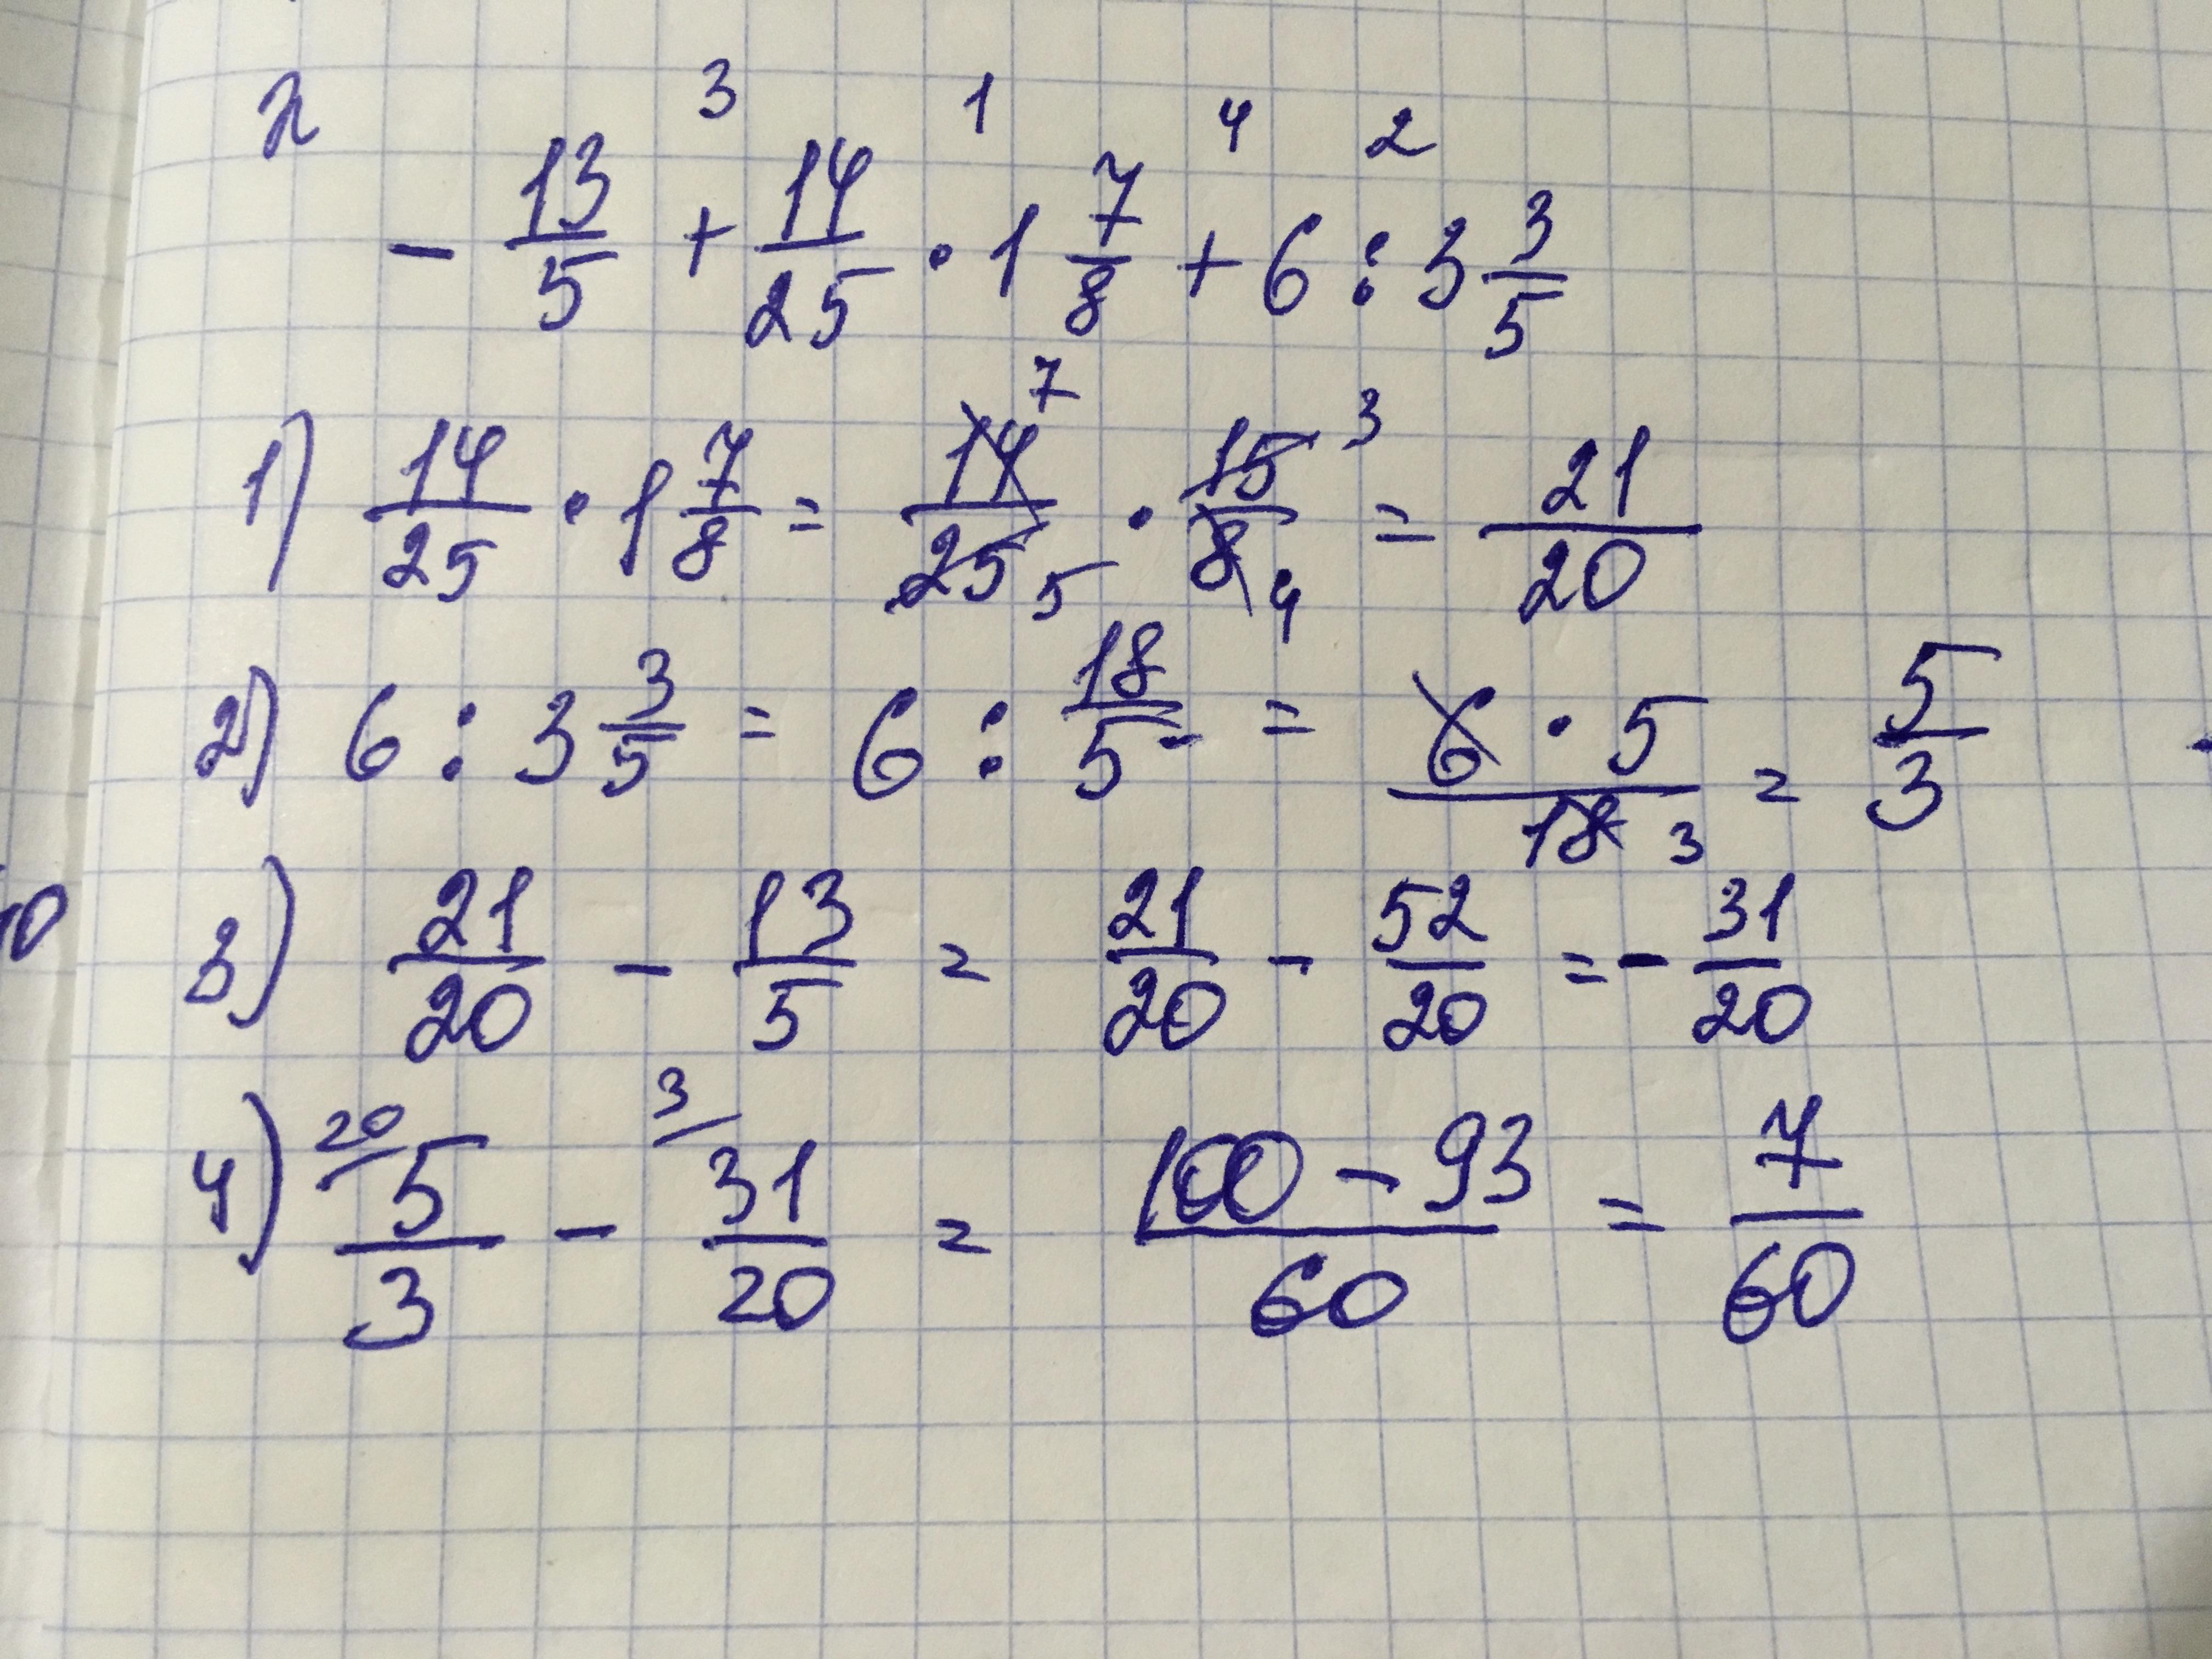 л
3 1 4 2
- 13/5 + 14/25 · 1 7/8 + 6 : 3 3/5
1) 14/25 · 1 7/8 = 14 7/25 5 · 15 3/8 4 = 21/20
2) 6 : 3 3/5 = 6 : 18/5 = 6 · 5/18 3 = 5/3
3) 21/20 - 13/5 = 21/20 - 52/20 = - 31/20
4) 20/ 5/3 - 3/ 31/20 = 100 - 93/60 = 7/60